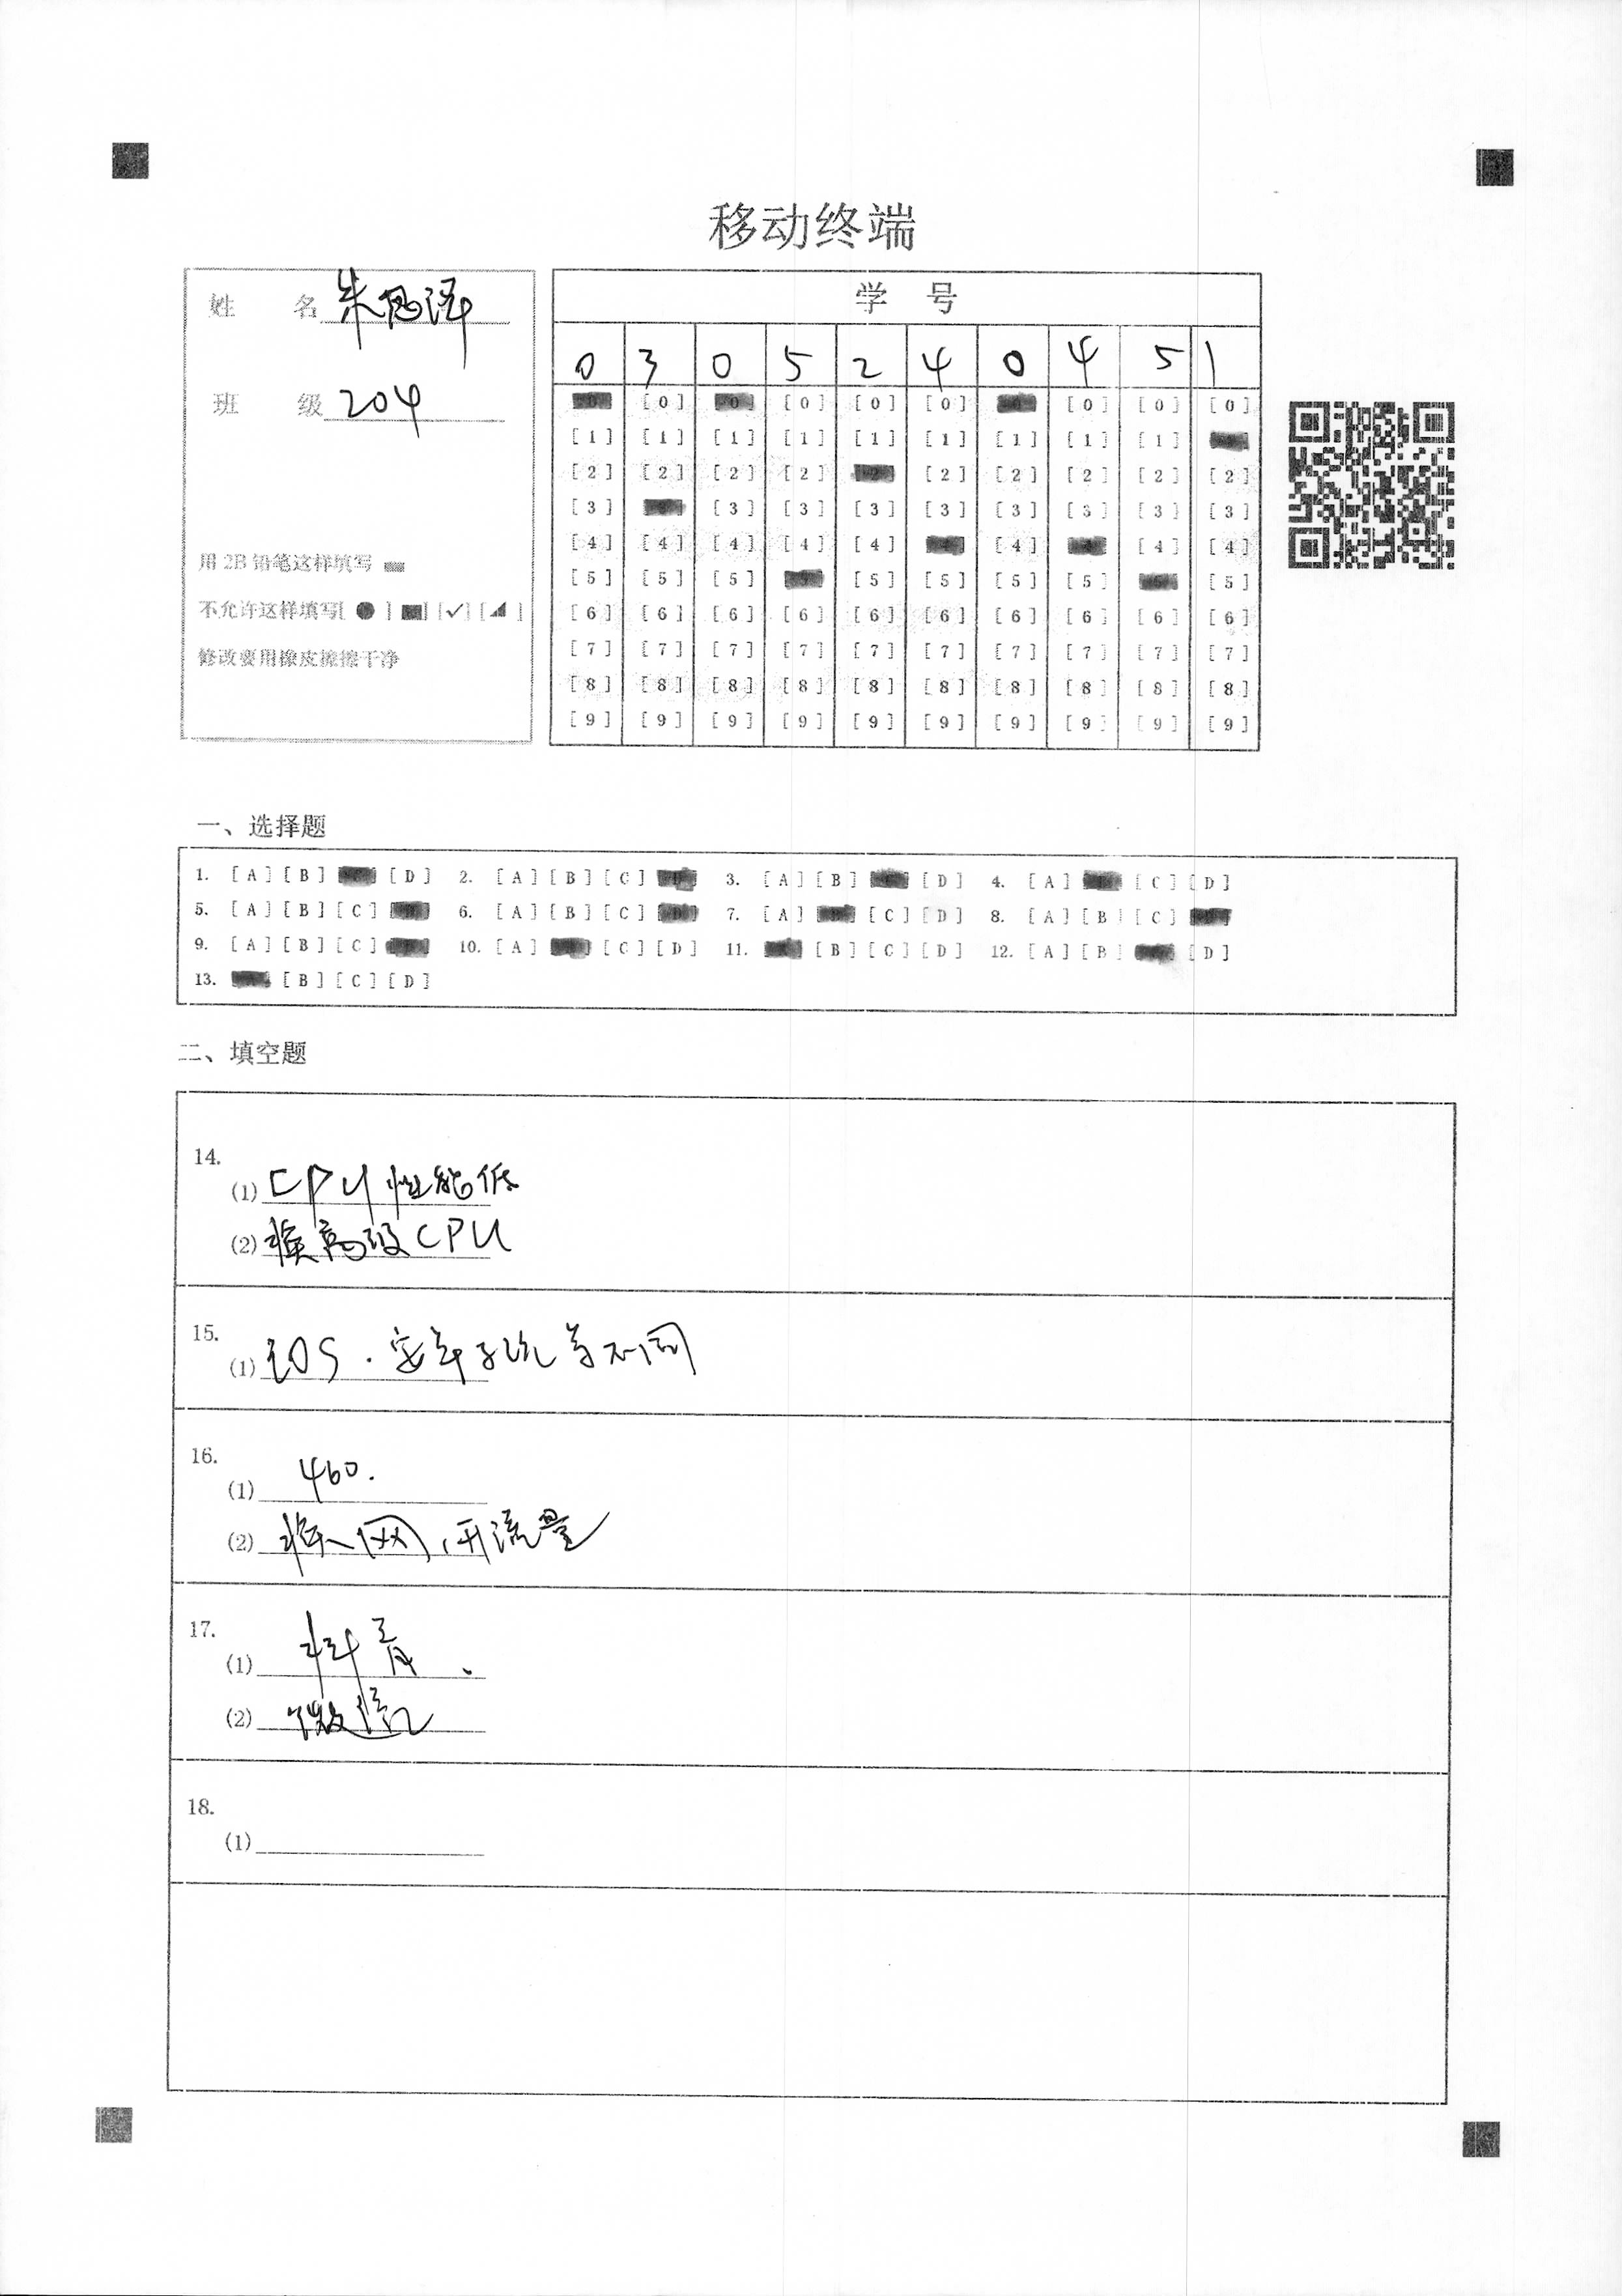 移动终端
姓 名 朱
班 级 204
用 2B 铅笔这样填写
不允许这样填写[ ● ] [■] [✓] [◢ ]
修改要用橡皮擦擦干净
学 号
0 3 0 5 2 4 0 4 5 1
[0] [0] [0] [0] [0] [0] [0]
[1] [1] [1] [1] [1] [1] [1] [1] [1]
[2] [2] [2] [2] [2] [2] [2] [2] [2]
[3] [3] [3] [3] [3] [3] [3] [3] [3]
[4] [4] [4] [4] [4] [4] [4] [4]
[5] [5] [5] [5] [5] [5] [5] [5]
[6] [6] [6] [6] [6] [6] [6] [6] [6] [6]
[7] [7] [7] [7] [7] [7] [7] [7] [7] [7]
[8] [8] [8] [8] [8] [8] [8] [8] [8] [8]
[9] [9] [9] [9] [9] [9] [9] [9] [9] [9]
一、选择题
1. [A] [B] [D] 2. [A] [B] [C] 3. [A] [B] [D] 4. [A] [C] [D]
5. [A] [B] [C] 6. [A] [B] [C] 7. [A] [C] [D] 8. [A] [B] [C]
9. [A] [B] [C] 10. [A] [C] [D] 11. [B] [C] [D] 12. [A] [B] [D]
13. [B] [C] [D]
二、填空题
14.
(1) CPU 性能低
(2) 换高级CPU
15.
(1) iOS.安卓系统等不同
16.
(1) 460.
(2) 网,开流量
17.
(1) 抖音、
(2) 微信
18.
(1)